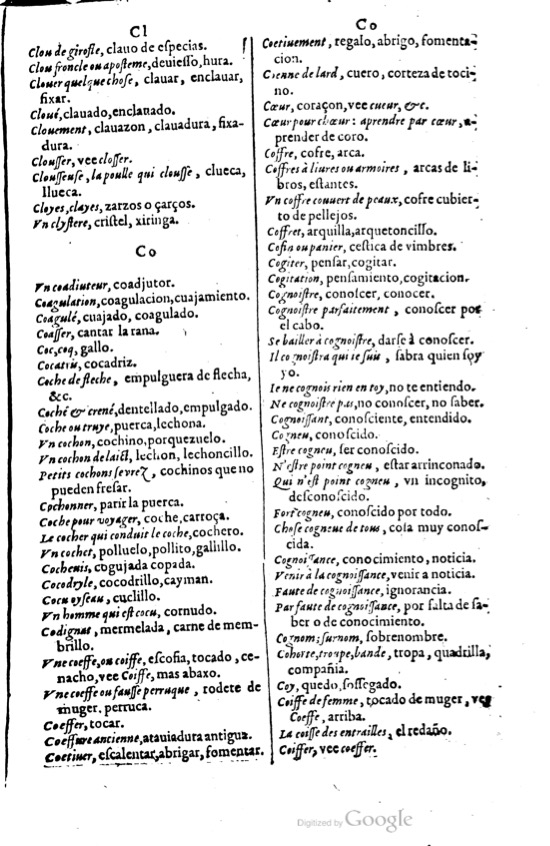 Cl
Clou de girofle, clauo de especias.
Clou froncle ou aposteme, deuiesso, hura.
Clouer quelque chose, clauar, enclauar,
fixar.
Cloué, clauado, enclauado.
Clouement, clauazon, clauadura, fixa-
dura.
Clousser, vee closser.
Clousseuse, la poulle qui clousse, clueca,
llueca.
Cloyes, clayes, zarzos o çarços.
Vn clystere, cristel, xiringa.
Co
Vn coadiuteur, coadjutor.
Coagulation, coagulacion, cuajamiento.
Coagulé, cuajado, coagulado.
Coasser, cantar la rana.
Coc, coq, gallo.
Cocatris, cocadriz.
Coche de fleche, empulguera de flecha,
&c.
Coché & crené, dentellado, empulgado.
Coche ou truye, puerca, lechona.
Vn cochon, cochino, porquezuelo.
Vn cochon de laict, lechon, lechoncillo.
Petits cochons sevrez, cochinos que no
pueden fresar.
Cochonner, parir la puerca.
Coche pour voyager, coche, carroça.
Le cocher qui conduit le coche, cochero.
Vn cochet, polluelo, pollito, gallillo.
Cocheuis, cogujada copada.
Cocodryle, cocodrillo, cayman.
Cocu oyseau, cuclillo.
Vn homme qui est cocu, cornudo.
Codignat, mermelada, carne de mem-
brillo.
Vne coeffe, ou coiffe, escofia, tocado, ce-
nacho, vee Coiffe, mas abaxo.
Vne coeffe ou fausse perruque, rodete de
muger, perruca.
Coeffer, tocar.
Coeffure ancienne, atauiadura antigua.
Coetiuer, escalentar, abrigar, fomentar.
Co
Coetiuement, regalo, abrigo, fomenta-
cion.
Coenne de lard, cuero, corteza de toci-
no.
Cœur, coraçon, vee cueur, &c.
Cœur pour chœur: aprendre par cœur, a-
prender de coro.
Coffre, cofre, arca.
Coffres à liures ou armoires, arcas de li-
bros, estantes.
Vn coffre couuert de peaux, cofre cubier-
to de pellejos.
Coffret, arquilla, arquetoncillo.
Cofin ou panier, cestica de vimbres.
Cogiter, pensar, cogitar.
Cogitation, pensamiento, cogitacion.
Cognoistre, conoscer, conocer.
Cognoistre parfaitement, conoscer por
el cabo.
Se bailler à cognoistre, darse à conoscer.
Il cognoistra qui ie suis, sabra quien soy
yo.
Ie ne cognois rien en toy, no te entiendo.
Ne cognoistre pas, no conoscer, no saber.
Cognoissant, conosciente, entendido.
Cogneu, conoscido.
Estre cogneu, ser conoscido.
N'estre point cogneu, estar arrinconado.
Qui n'est point cogneu, vn incognito,
desconoscido.
Fort cogneu, conoscido por todo.
Chose cogneue de tous, cosa muy conos-
cida.
Cognoissance, conocimiento, noticia.
Venir à la cognoissance, venir a noticia.
Faute de cognoissance, ignorancia.
Par faute de cognoissance, por falta de sa-
ber o de conocimiento.
Cognom; surnom, sobrenombre.
Cohorte, troupe, bande, tropa, quadrilla,
compañia.
Coy, quedo, sossegado.
Coiffe de femme, tocado de muger, vee
Coeffe, arriba.
La coisse des entrailles, el redaño.
Coiffer, vee coeffer.
Digitized by Google